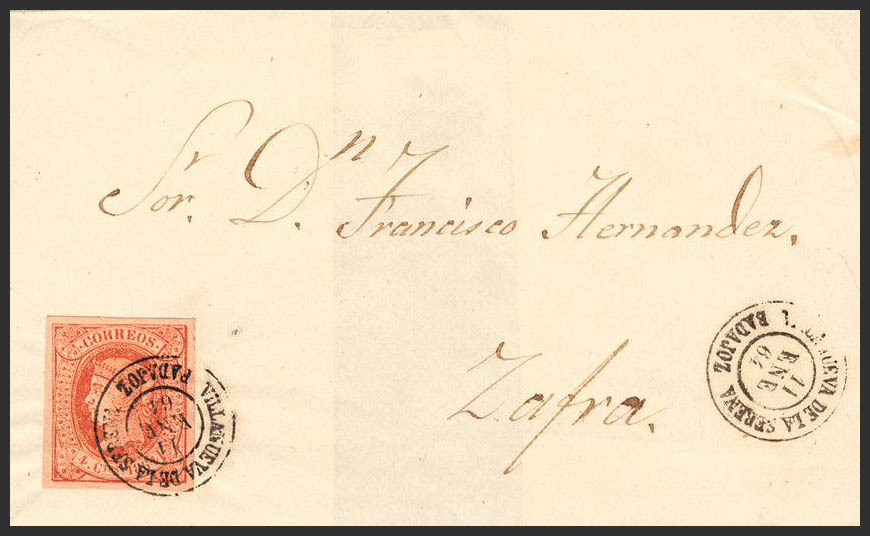 Sor. Dn. Francisco Hernandez.
Zafra.
CORREOS.
VILLANUEVA DE LA SERENA
BADAJOZ
11
ENE
64
NUEVA DE LA SERENA
BADAJOZ
11
ENE
64